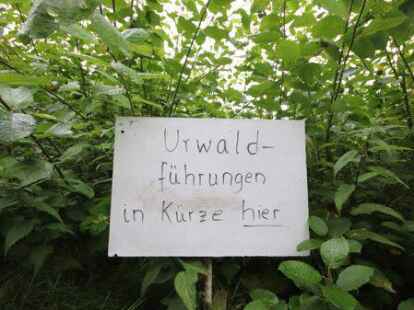 Urwald-
führungen
in Kürze hier